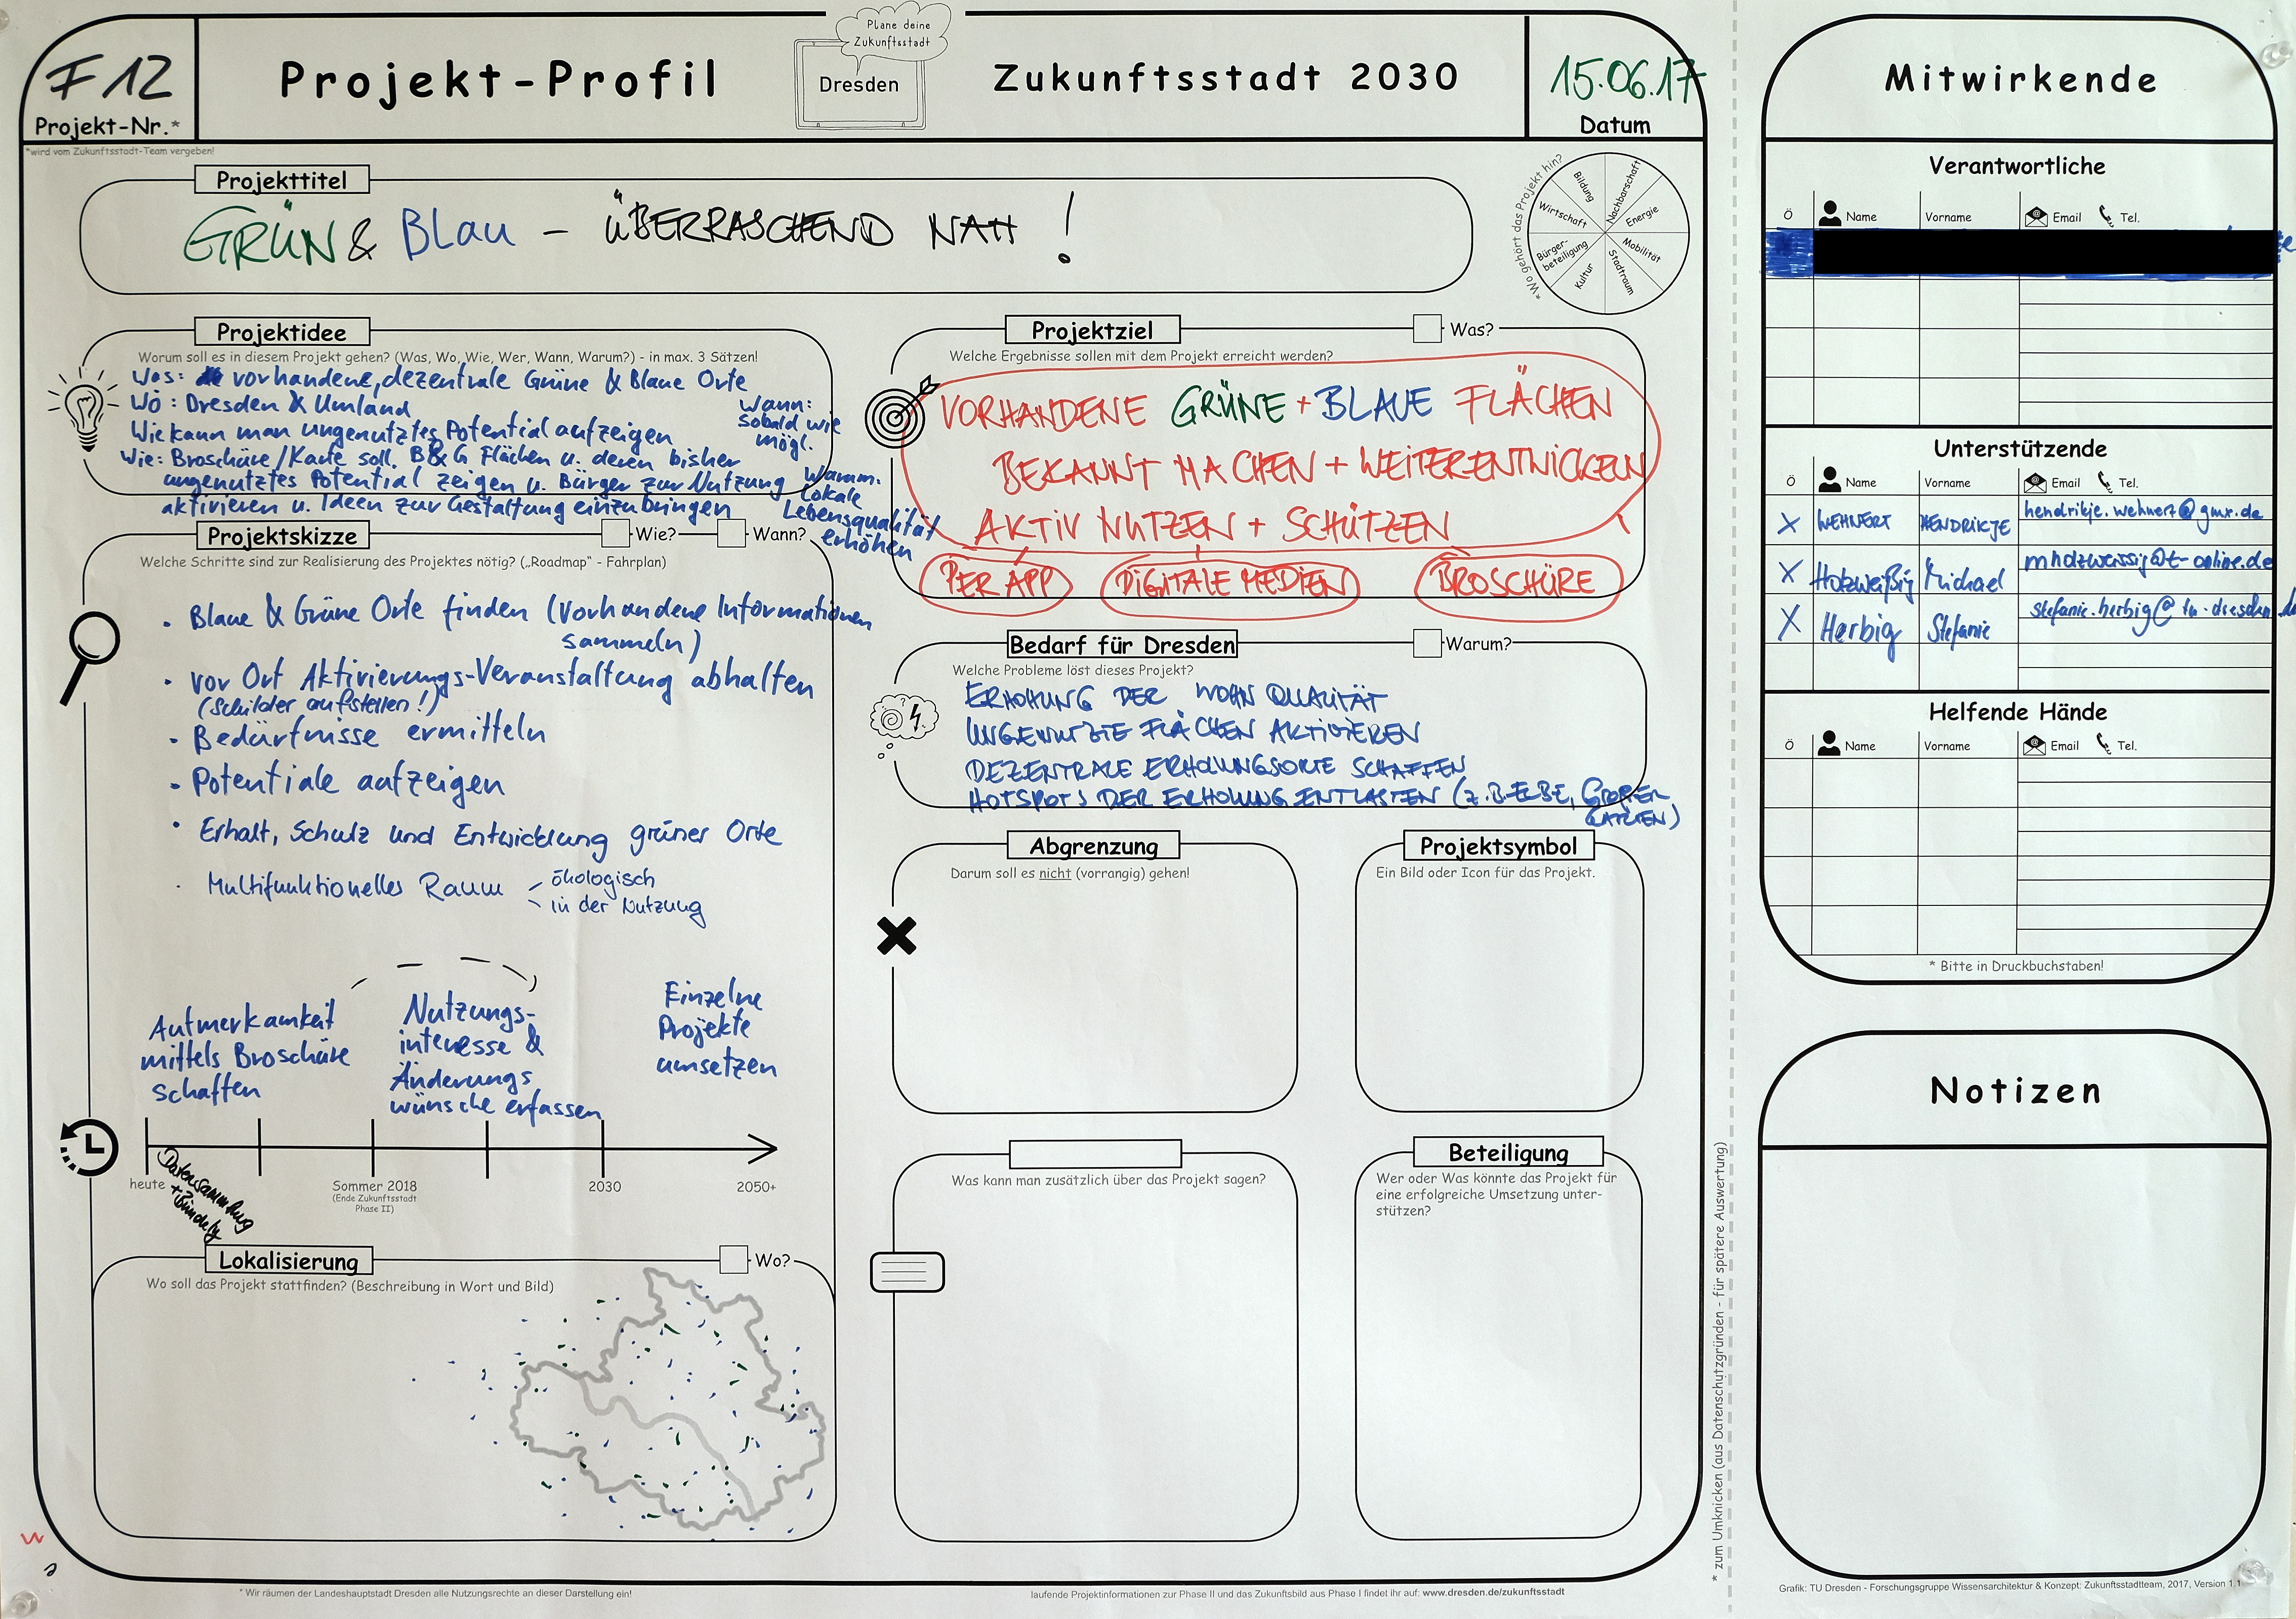 F12
Projekt-Nr.*
*wird vom Zukunftsstadt-Team vergeben!
Projekt-Profil
Plane deine
Zukunftsstadt
Dresden
Zukunftsstadt 2030
15.06.17
Datum
Projekttitel
GRÜN & Blau - ÜBERRASCHEND NAH !
*Wo gehört das Projekt hin?
Bildung
Nachbarschaft
Energie
Mobilität
Stadtraum
Kultur
Bürger-
beteiligung
Wirtschaft
Projektidee
Worum soll es in diesem Projekt gehen? (Was, Wo, Wie, Wer, Wann, Warum?) - in max. 3 Sätzen!
Was: vorhandene, dezentrale Grüne & Blaue Orte
Wo: Dresden & Umland
Wie kann man ungenutztes Potential aufzeigen
Wie: Broschüre/Karte soll B&G Flächen u. deren bisher
ungenutztes Potential zeigen u. Bürger zur Nutzung
aktivieren u. Ideen zur Gestaltung einzubringen
Wann:
Sobald wie
mögl.
Warum:
Lokale
Lebensqualität
erhöhen
Projektskizze
Wie?
Wann?
Welche Schritte sind zur Realisierung des Projektes nötig? („Roadmap“ - Fahrplan)
• Blaue & Grüne Orte finden (Vorhandene Informationen
sammeln)
• vor Ort Aktivierungs-Veranstaltung abhalten
(Schilder aufstellen!)
• Bedürfnisse ermitteln
• Potentiale aufzeigen
• Erhalt, Schutz und Entwicklung grüner Orte
• Multifunktionelles Raum
ökologisch
in der Nutzung
Aufmerkamkeit
mittels Broschüre
schaffen
Nutzungs-
interesse &
Änderungs
wünsche erfassen
Einzelne
Projekte
umsetzen
heute
Datensammlung
Sommer 2018
(Ende Zukunftsstadt
Phase II)
2030
2050+
Lokalisierung
Wo?
Wo soll das Projekt stattfinden? (Beschreibung in Wort und Bild)
Projektziel
Was?
Welche Ergebnisse sollen mit dem Projekt erreicht werden?
VORHANDENE GRÜNE + BLAUE FLÄCHEN
BEKANNT MACHEN + WEITERENTWICKELN
AKTIV NUTZEN + SCHÜTZEN
PER APP
DIGITALE MEDIEN
BROSCHÜRE
Bedarf für Dresden
Warum?
Welche Probleme löst dieses Projekt?
ERHÖHUNG DER WOHN QUALITÄT
UNGENUTZTE FLÄCHEN AKTIVIEREN
DEZENTRALE ERHOLUNGSORTE SCHAFFEN
HOTSPOTS DER ERHOLUNG ENTLASTEN (z.B. ELBE, GROßER
GARTEN)
Abgrenzung
Darum soll es nicht (vorrangig) gehen!
Projektsymbol
Ein Bild oder Icon für das Projekt.
Was kann man zusätzlich über das Projekt sagen?
Beteiligung
Wer oder Was könnte das Projekt für
eine erfolgreiche Umsetzung unter-
stützen?
* zum Umknicken (aus Datenschutzgründen - für spätere Auswertung)
* Wir räumen der Landeshauptstadt Dresden alle Nutzungsrechte an dieser Darstellung ein!
laufende Projektinformationen zur Phase II und das Zukunftsbild aus Phase I findet ihr auf: www.dresden.de/zukunftsstadt
Mitwirkende
Verantwortliche
Ö Name Vorname Email Tel.
Unterstützende
Ö Name Vorname Email Tel.
X WEHNERT HENDRIKJE hendrikje.wehnert@gmx.de
X Holzweißig Michael mholzweissig@t-online.de
X Herbig Stefanie stefanie.herbig@tu-dresden.de
Helfende Hände
Ö Name Vorname Email Tel.
* Bitte in Druckbuchstaben!
Notizen
Grafik: TU Dresden - Forschungsgruppe Wissensarchitektur & Konzept: Zukunftsstadtteam, 2017, Version 1.1